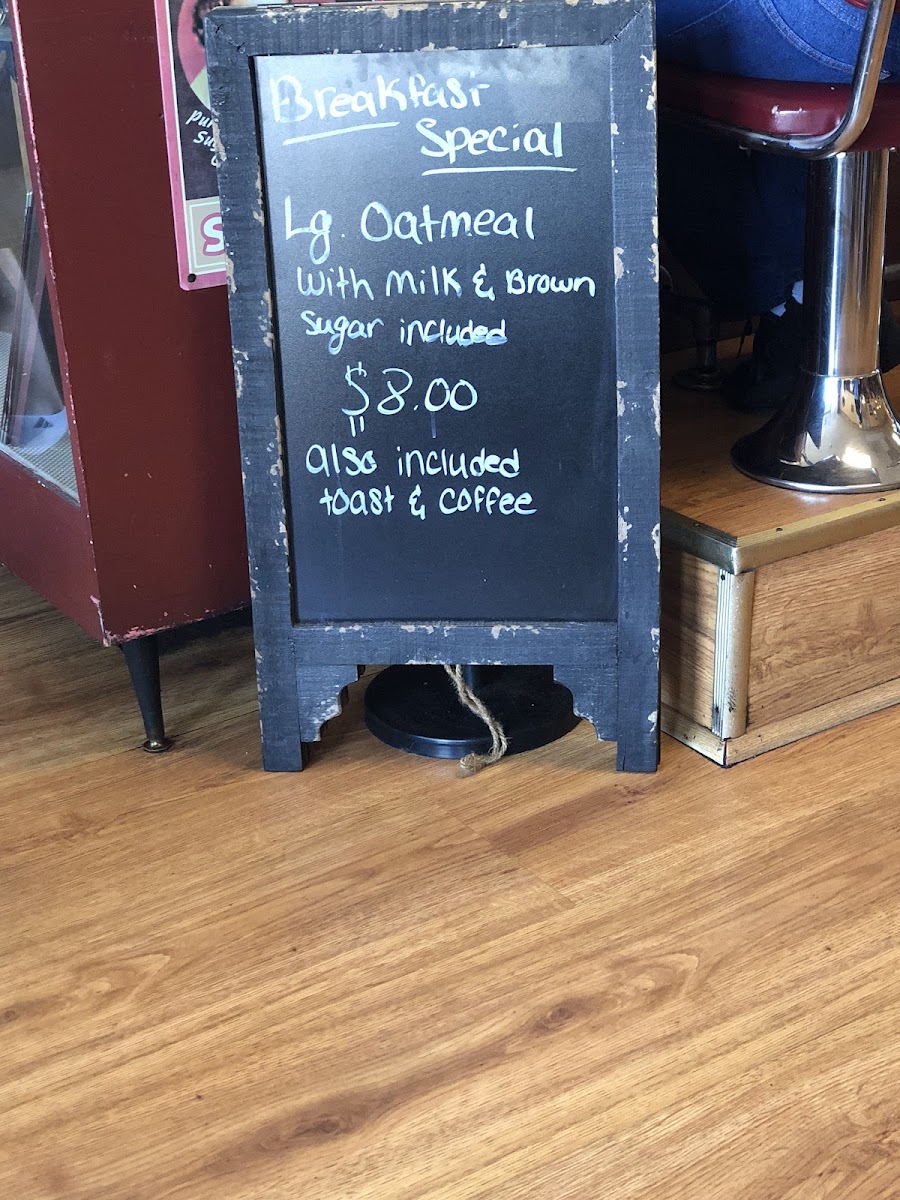 Breakfast
Special
Lg. Oatmeal
with milk & Brown
sugar included
$8.00
also included
toast & coffee